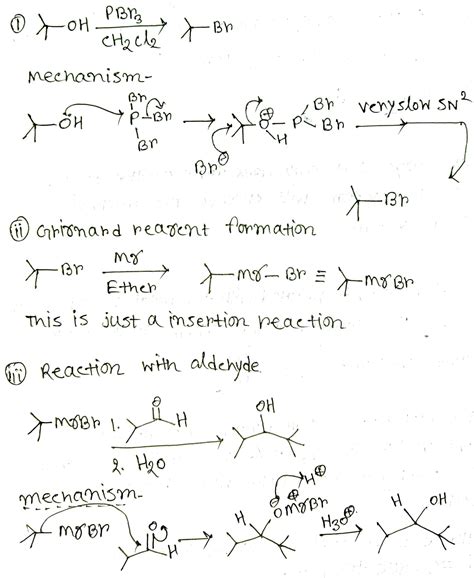 ① OH PBr3 CH2Cl2 Br
Mechanism-
OH Br P Br Br → Br⊖ O⊕ H P Br Br very slow SN2
Br
ii Grignard reagent formation
Br Mg Ether → Mg-Br ≡ MgBr
This is just a insertion reaction
iii Reaction with aldehyde
MgBr 1. O H 2. H2O → OH
mechanism-
MgBr O H → H O⊖ ⊕MgBr H⊕ H3O⊕ → H OH